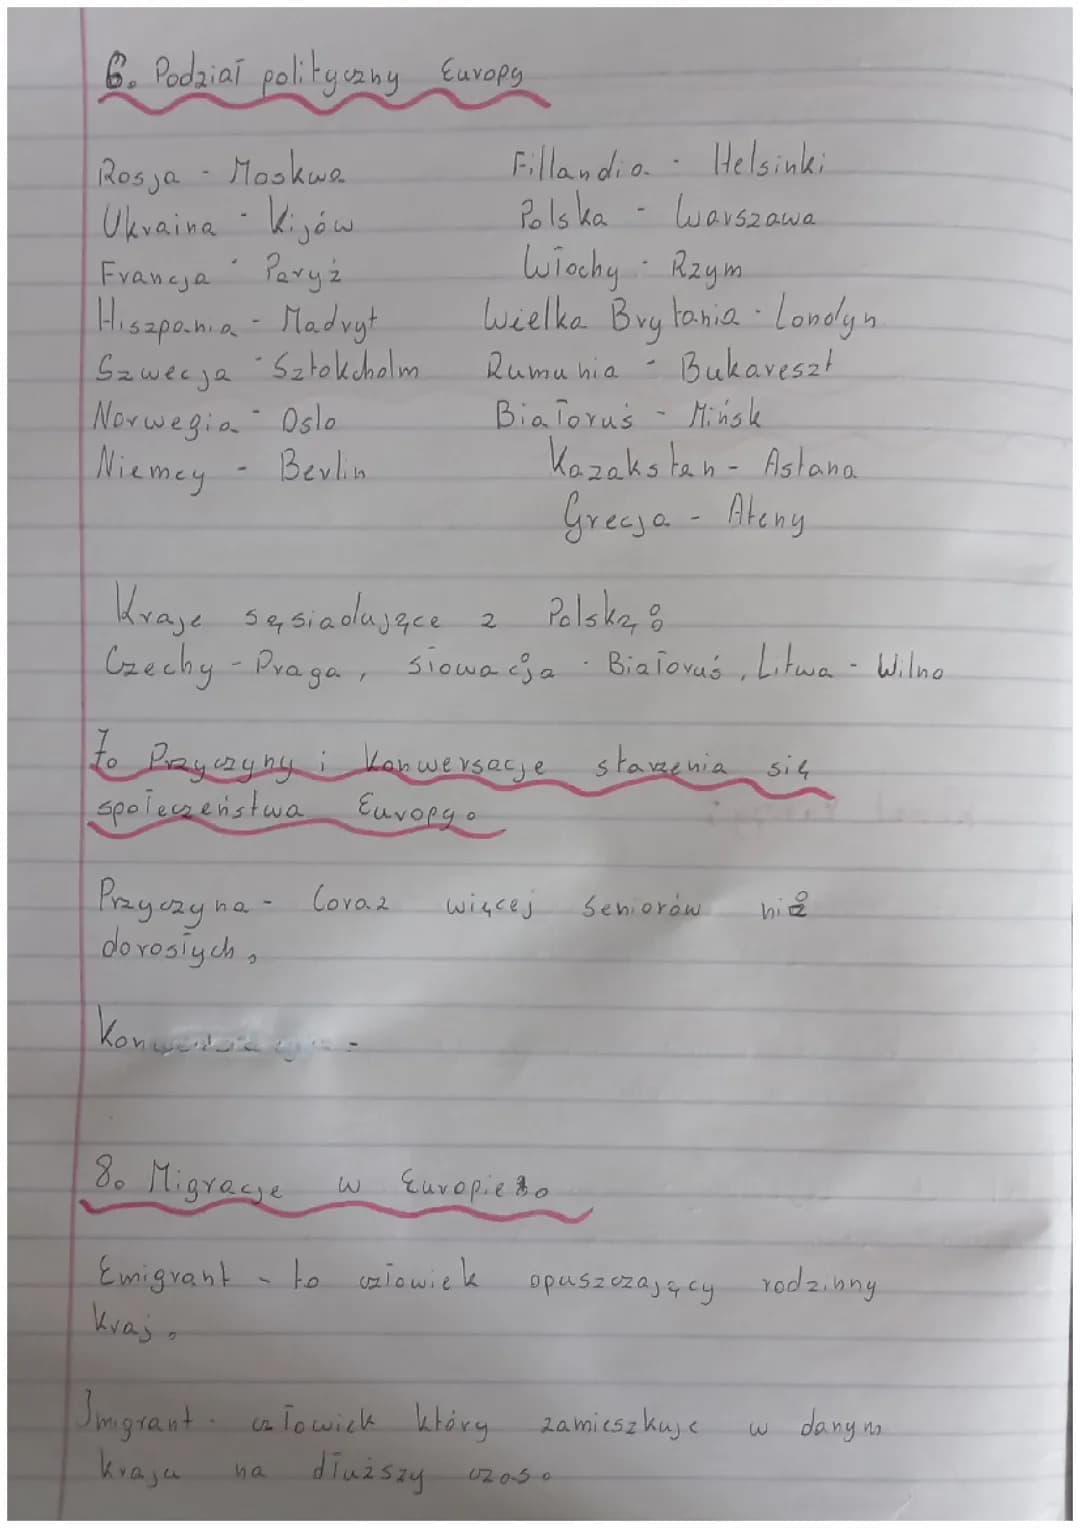 6. Podział polityczny Europy
Rosja - Moskwa
Ukraina - Kijów
Francja - Paryż
Hiszpania - Madryt
Szwecja - Sztokcholm
Norwegia - Oslo
Niemcy - Berlin
Fillandia - Helsinki
Polska - Warszawa
Włochy - Rzym
Wielka Brytania - Londyn
Rumunia - Bukareszt
Białoruś - Mińsk
Kazakstan - Astana
Grecja - Ateny
Kraje sąsiadujące z Polską:
Czechy - Praga, Słowacja - Białoruś, Litwa - Wilno
7. Przyczyny i Konwersacje starzenia się
społeczeństwa Europy.
Przyczyna - Coraz więcej seniorów niż
dorosłych.
8. Migracje w Europie.
Emigrant - to człowiek opuszczający rodzinny
kraj.
Imigrant - człowiek który zamieszkuje w danym
kraju na dłuższy czas.